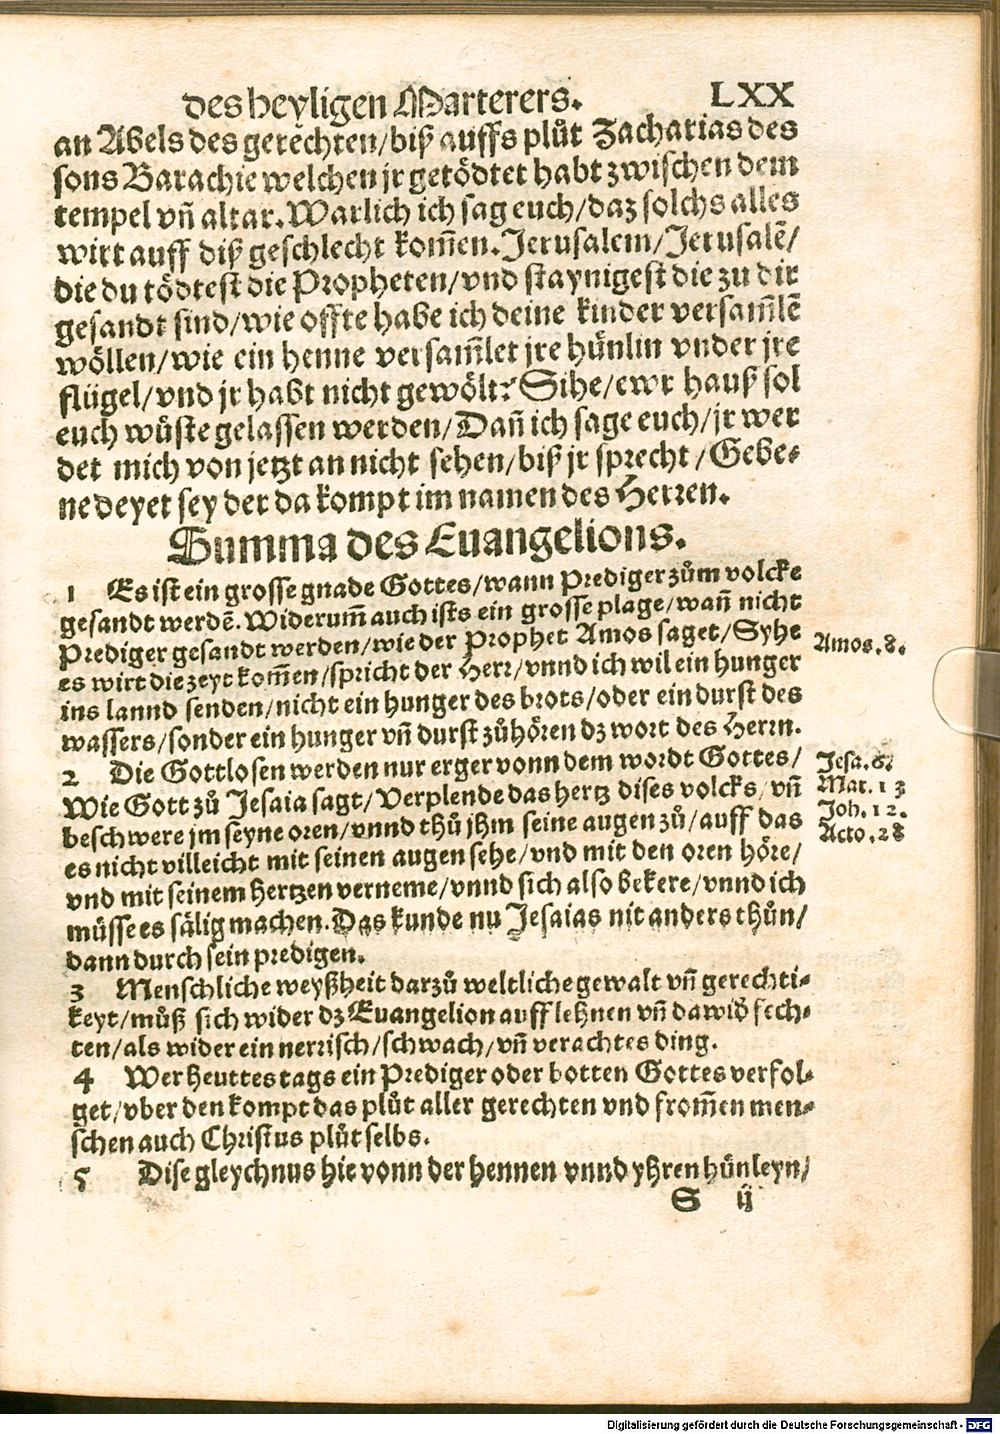 des heyligen Marterers. LXX
an Abels des gerechten/biß auffs plůt Zacharias des
sons Barachie welchen jr getödtet habt zwischen dem
tempel vñ altar. Warlich ich sag euch/daz solchs alles
wirt auff diß geschlecht kom̃en. Jerusalem/Jerusalẽ/
die du tödtest die Propheten/vnd staynigest die zu dir
gesandt sind/wie offte habe ich deine kinder versam̃lẽ
wöllen/wie ein henne versam̃let jre hünlin vnder jre
flügel/vnd jr habt nicht gewölt? Sihe/ewr hauß sol
euch wůste gelassen werden/Dañ ich sage euch/jr wer
det mich von jetzt an nicht sehen/biß jr sprecht/Gebe-
nedeyet sey der da kompt im namen des Herren.
Summa des Euangelions.
1 Es ist ein grosse gnade Gottes/wann Prediger zům volcke
gesandt werdẽ. Widerum̃ auch ists ein grosse plage/wañ nicht
Prediger gesandt werden/wie der Prophet Amos saget/Syhe
Amos. 8.
es wirt die zeyt kom̃en/spricht der Herr/vnnd ich wil ein hunger
ins lannd senden/nicht ein hunger des brots/oder ein durst des
wassers/sonder ein hunger vñ durst zů hören dz wort des Herrn.
2 Die Gottlosen werden nur erger vonn dem wordt Gottes/
Jesa. 6.
Wie Gott zů Jesaia sagt/Verplende das hertz dises volcks/vñ
Mat. 13
beschwere jm seyne oren/vnnd thů jhm seine augen zů/auff das
Joh. 12.
Acto. 28
es nicht villeicht mit seinen augen sehe/vnd mit den oren höre/
vnd mit seinem hertzen verneme/vnnd sich also bekere/vnnd ich
müsse es sälig machen. Das kunde nu Jesaias nit anders thůn/
dann durch sein predigen.
3 Menschliche weyßheit darzů weltliche gewalt vñ gerechti-
keyt/můß sich wider dz Euangelion aufflehnen vñ dawid̕ fech-
ten/als wider ein nerrisch/schwach/vñ verachtes ding.
4 Wer heuttes tags ein Prediger oder botten Gottes verfol-
get/vber den kompt das plůt aller gerechten vnd from̃en men-
schen auch Christus plůt selbs.
5 Dise gleychnus hie vonn der hennen vnnd yhren hünleyn/
S ij
Digitalisierung gefördert durch die Deutsche Forschungsgemeinschaft - DFG